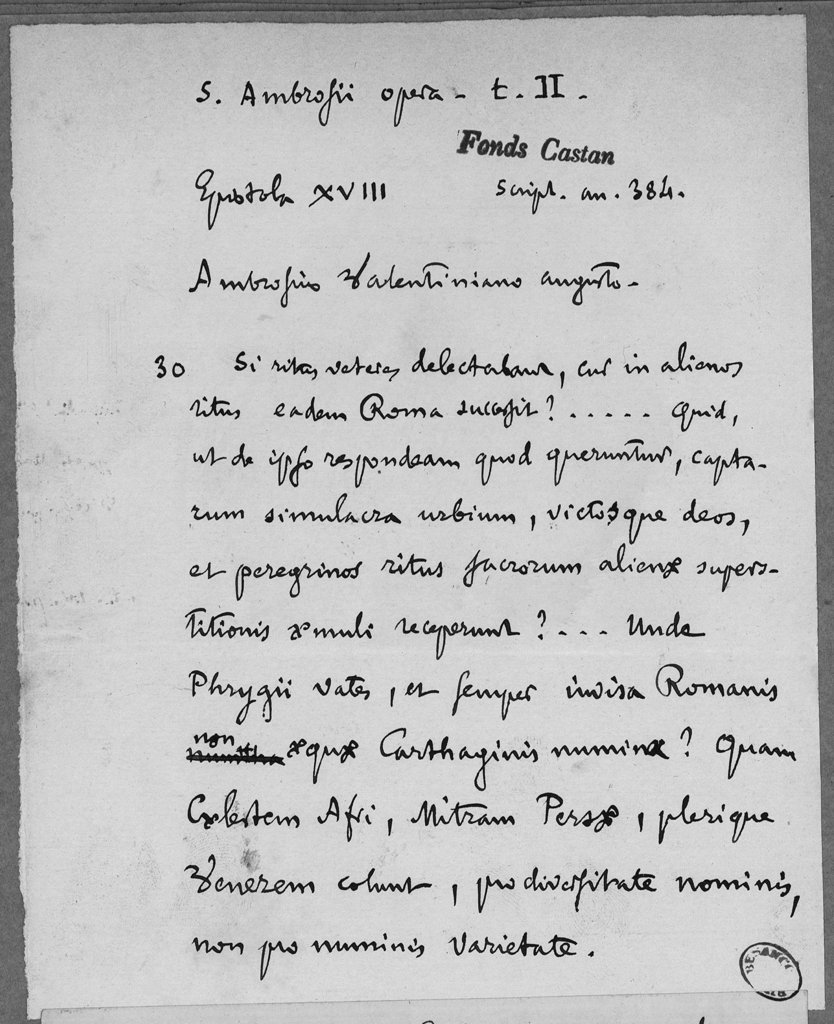 S. Ambrosii opera - t. II -
Fonds Castan
Epistola XVIII Script. an. 384.
Ambrosius Valentiniano augusto -
30 Si ritus veteres delectabant, cur in alienos
ritus eadem Roma successit? ..... Quid,
ut de ipso respondeam quod queruntur, capta-
rum simulacra urbium, victosque deos,
et peregrinos ritus sacrorum alienæ supers-
titionis æmuli receperunt? ... Unde
Phrygii vates, et semper invisa Romanis
non
æquæ Carthaginis numina? Quam
Cælestem Afri, Mitram Persæ, plerique
Venerem colunt, pro diversitate nominis,
non pro numinis varietate.